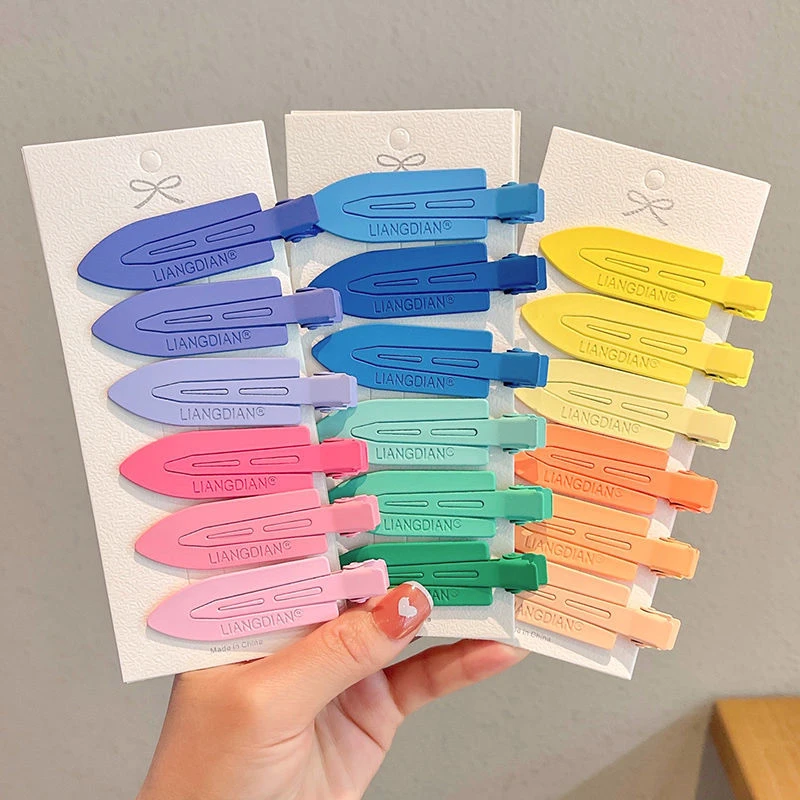 LIANGDIAN®
LIANGDIAN®
LIANGDIAN®
LIANGDIAN®
LIANGDIAN®
LIANGDIAN®
Made in China
LIANGDIAN®
LIANGDIAN®
LIANGDIAN®
LIANGDIAN®
LIANGDIAN®
LIANGDIAN®
LIANGDIAN®
LIANGDIAN®
LIANGDIAN®
LIANGDIAN®
LIANGDIAN®
Made in China